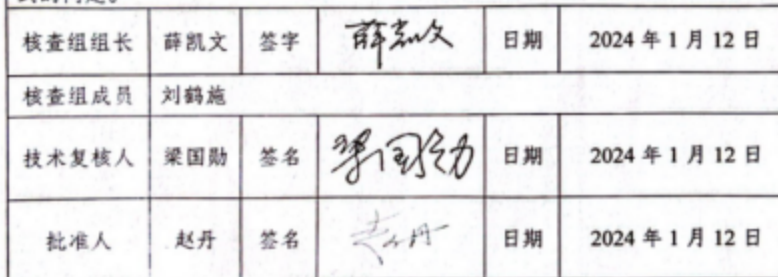 核查组组长 薛凯文 签字 薛凯文 日期 2024 年 1 月 12 日
核查组成员 刘鹤施
技术复核人 梁国勋 签名 梁国勋 日期 2024 年 1 月 12 日
批准人 赵丹 签名 赵丹 日期 2024 年 1 月 12 日